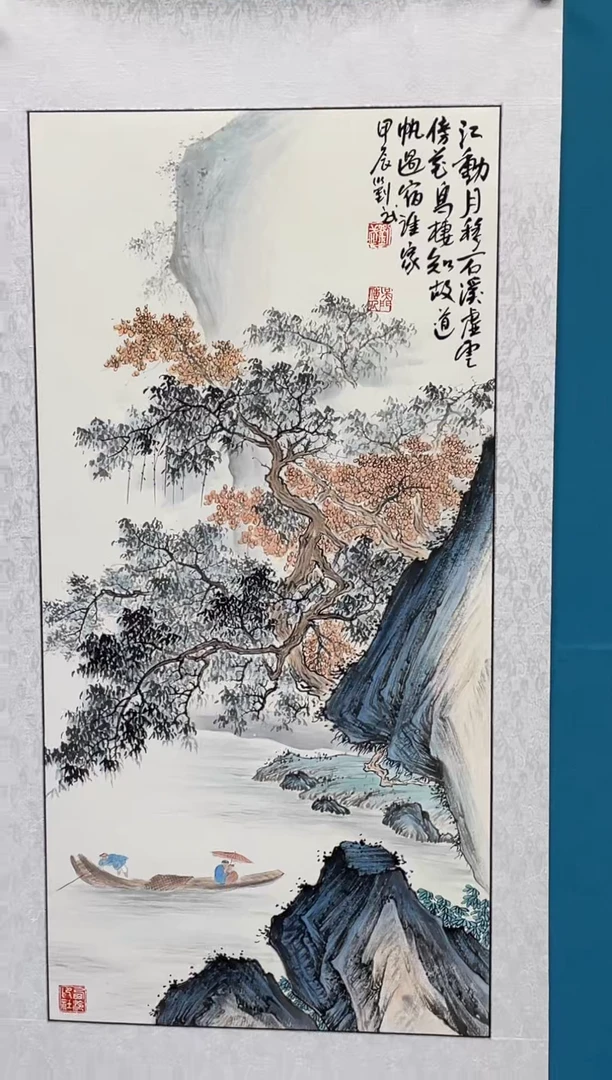 江動月移石溪虛雲
傍花鳥棲知故道
帆過宿誰家
甲辰劉